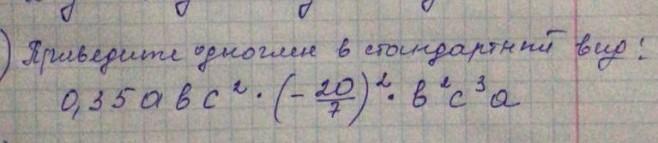 ) Приведите одночлен в стандартный вид:
0,35авс²·(-20/7)²·в²с³а